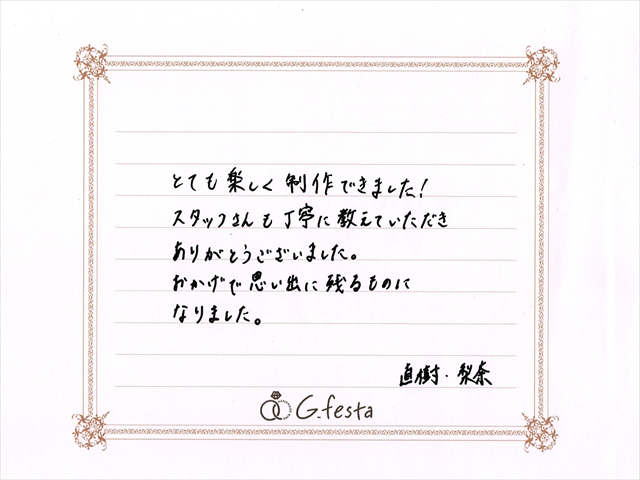 とても楽しく制作できました!
スタッフさんも丁寧に教えていただき
ありがとうございました。
おかげで思い出に残るものに
なりました。
直樹・梨奈
G.festa